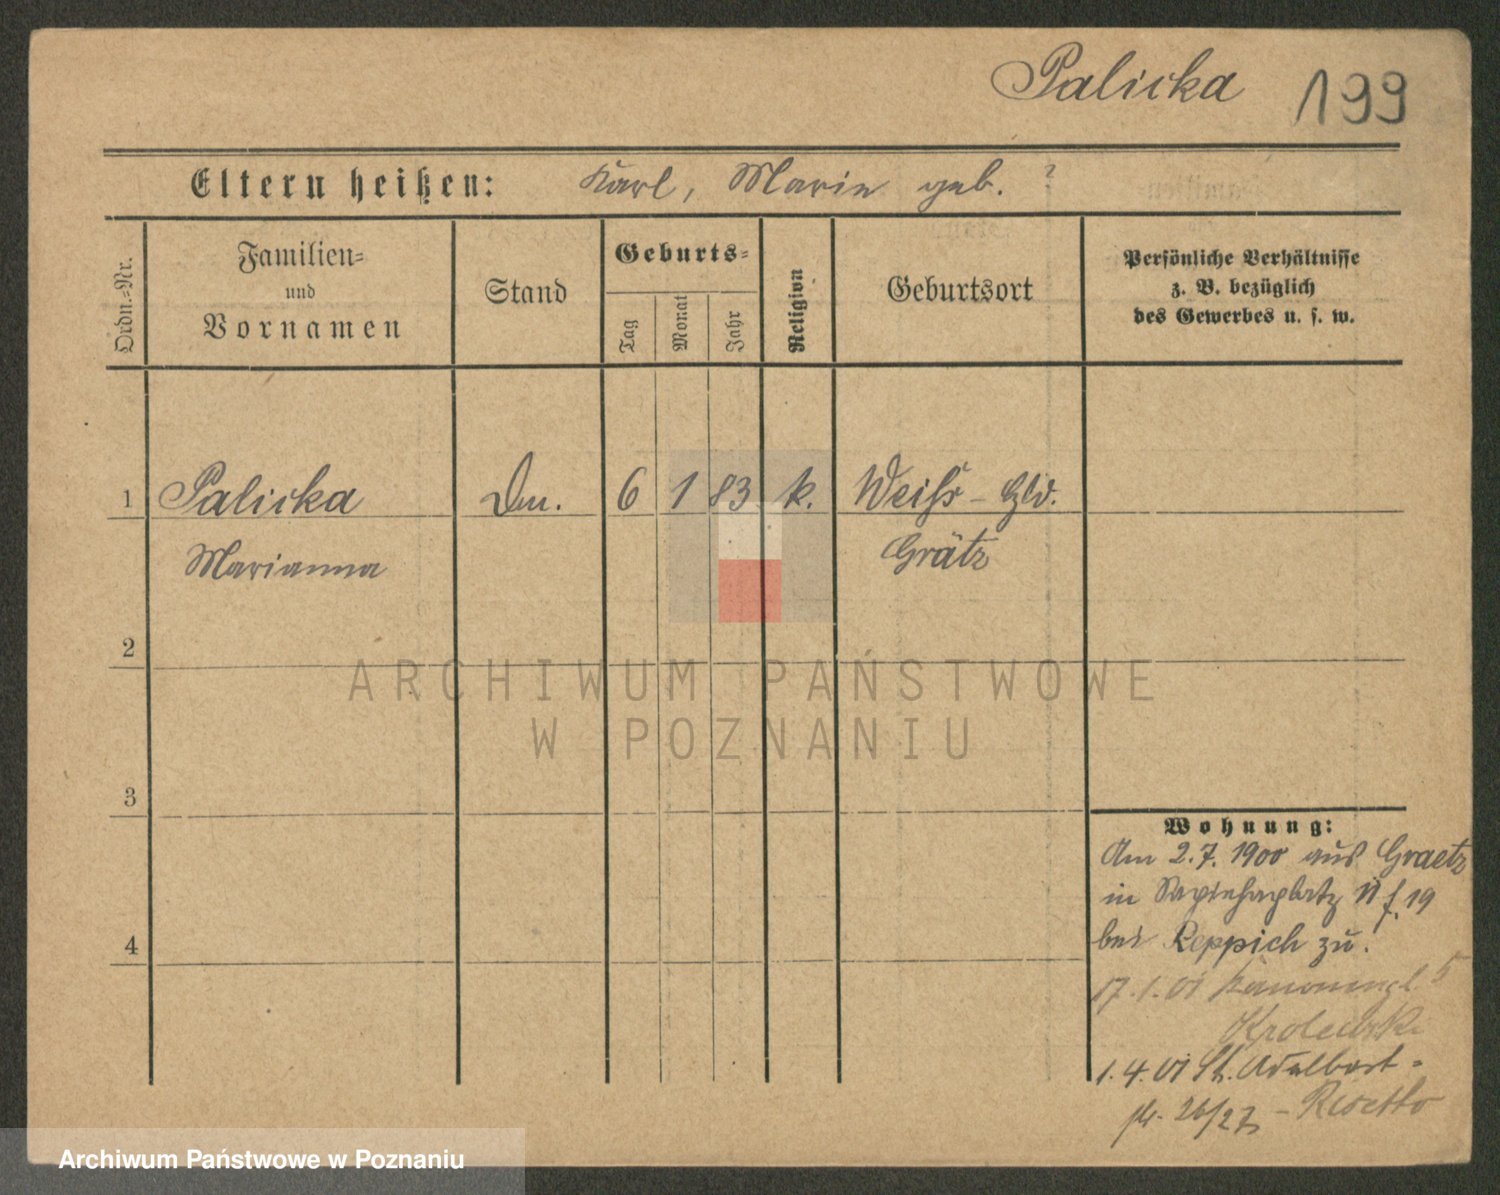 Palicka 199
Eltern heißen: Karl, Marie geb. ?
Ordn.=Nr.
Familien=
und
Vornamen
Stand
Geburts=
Tag
Monat
Jahr
Religion
Geburtsort
Persönliche Verhältnisse
z. B. bezüglich
des Gewerbes u. s. w.
1 Palicka 6 1 83 k. Weiß-
Marianna Grätz
2
3
4
ARCHIWUM PAŃSTWOWE
W POZNANIU
Wohnung:
Am 2.7.1900 aus Graetz
in Sapiehaplatz 19
bei Reppich zu.
17.1.01 5
1.4.01 St. Adalbert-
26/27
Archiwum Państwowe w Poznaniu